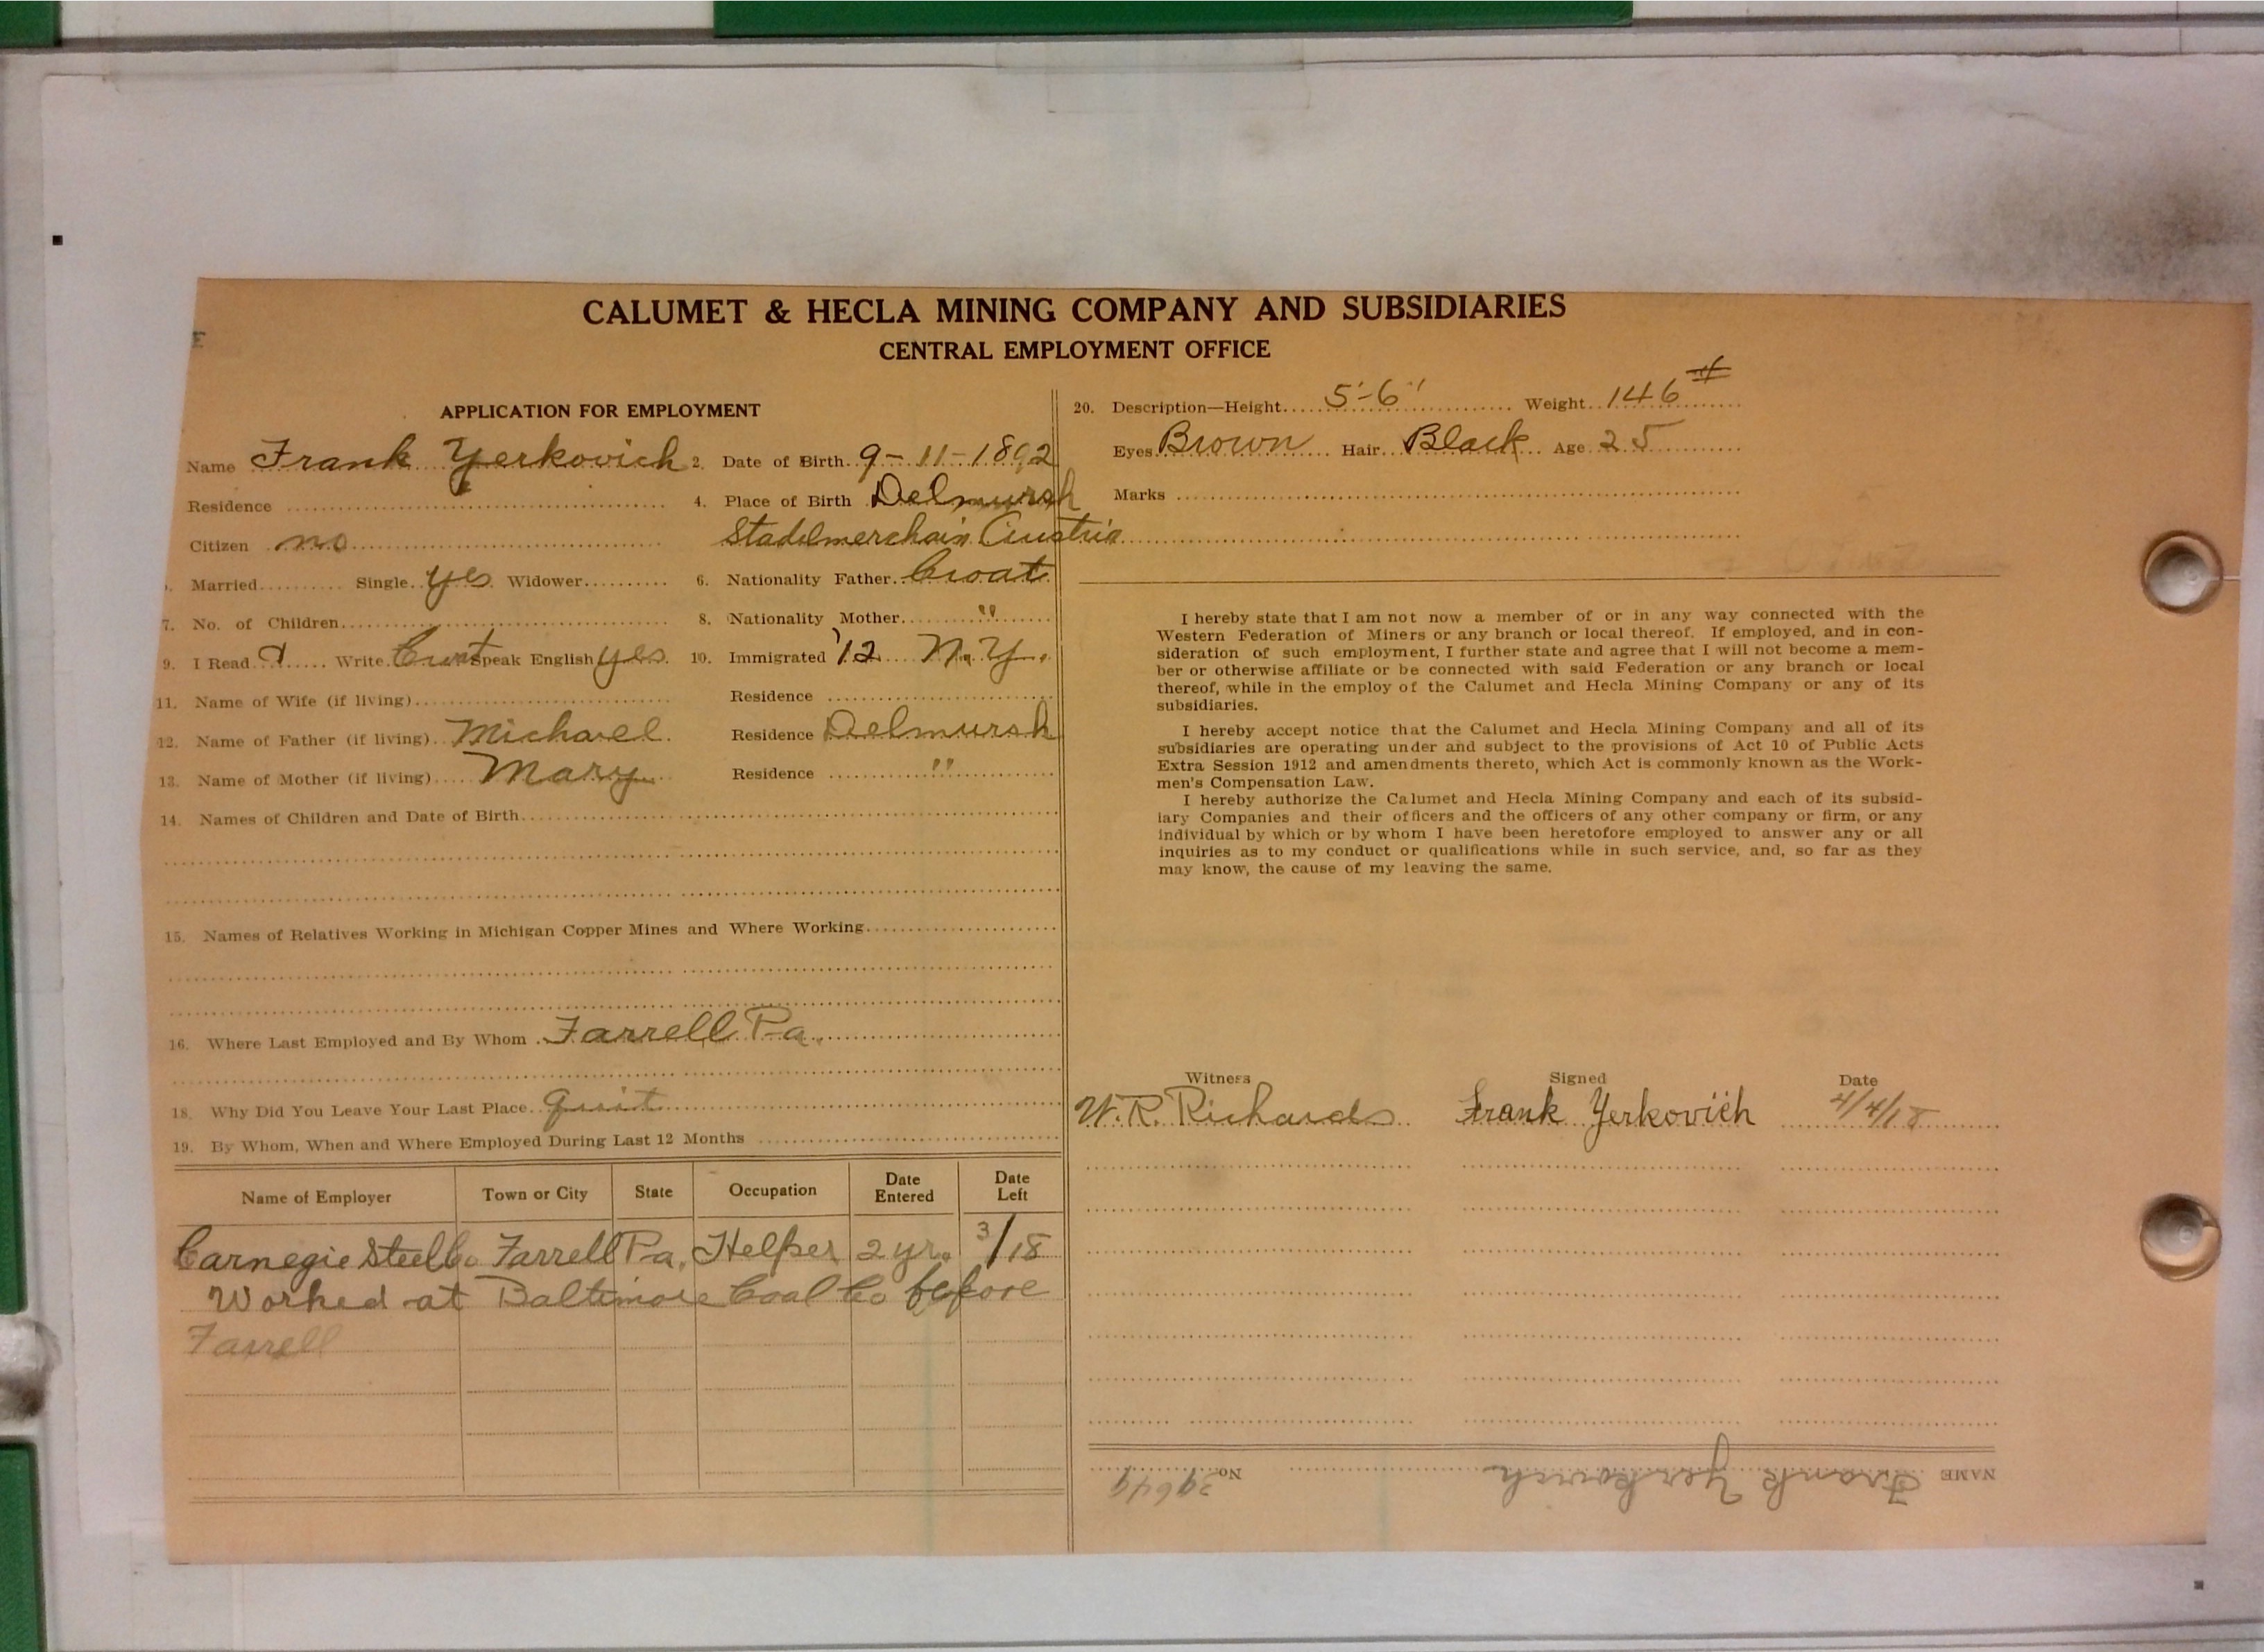 CALUMET & HECLA MINING COMPANY AND SUBSIDIARIES
CENTRAL EMPLOYMENT OFFICE
APPLICATION FOR EMPLOYMENT
Name Frank Yerkovich 2. Date of Birth 9-11-1892
Residence 4. Place of Birth Delmursh
Citizen no Stadelmerchain Austria
Married Single yes Widower 6. Nationality Father Croat
7. No. of Children 8. Nationality Mother "
9. I Read & Write Croat Speak English yes 10. Immigrated '12 N.Y.
11. Name of Wife (if living) Residence
12. Name of Father (if living) Michael Residence Delmursh
13. Name of Mother (if living) Mary Residence "
14. Names of Children and Date of Birth
15. Names of Relatives Working in Michigan Copper Mines and Where Working
16. Where Last Employed and By Whom Farrell Pa.
18. Why Did You Leave Your Last Place quit
19. By Whom, When and Where Employed During Last 12 Months
Name of Employer Town or City State Occupation Date Entered Date Left
Carnegie Steel Co Farrell Pa. Helper 2 yr. 3/18
Worked at Baltimore Coal Co before
Farrell
20. Description—Height 5'-6" Weight 146#
Eyes Brown Hair Black Age 25
Marks
I hereby state that I am not now a member of or in any way connected with the
Western Federation of Miners or any branch or local thereof. If employed, and in con-
sideration of such employment, I further state and agree that I will not become a mem-
ber or otherwise affiliate or be connected with said Federation or any branch or local
thereof, while in the employ of the Calumet and Hecla Mining Company or any of its
subsidiaries.
I hereby accept notice that the Calumet and Hecla Mining Company and all of its
subsidiaries are operating under and subject to the provisions of Act 10 of Public Acts
Extra Session 1912 and amendments thereto, which Act is commonly known as the Work-
men's Compensation Law.
I hereby authorize the Calumet and Hecla Mining Company and each of its subsid-
iary Companies and their officers and the officers of any other company or firm, or any
individual by which or by whom I have been heretofore employed to answer any or all
inquiries as to my conduct or qualifications while in such service, and, so far as they
may know, the cause of my leaving the same.
Witness Signed Date
W. R. Richards Frank Yerkovich 4/4/18
NAME Frank Yerkovich No. 39649